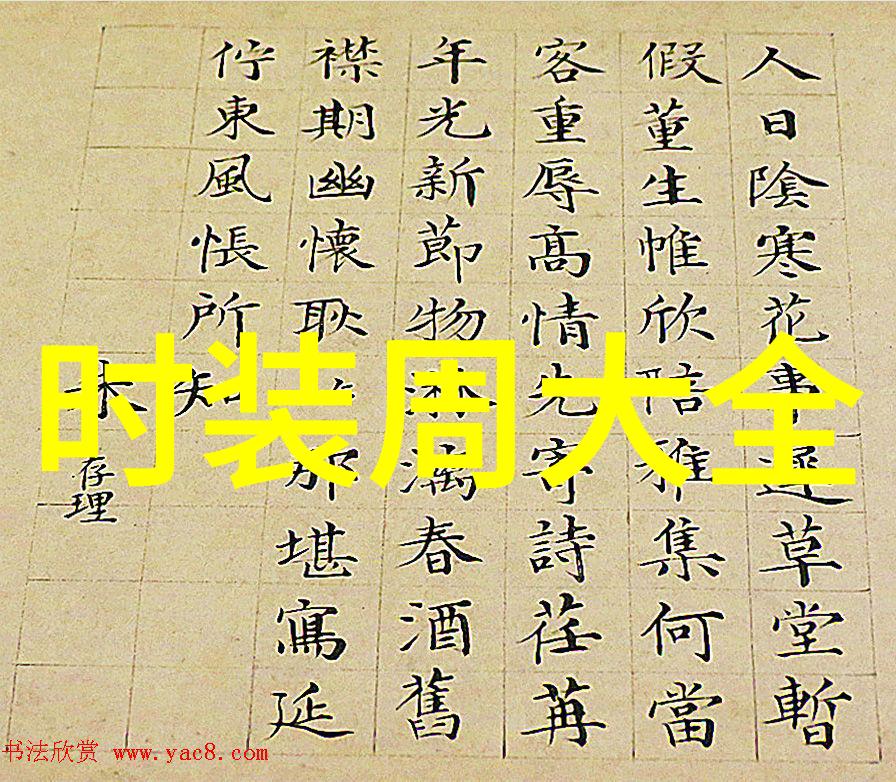 人日陰寒花事遲草堂暫
假董生帷欣陪雅集何當
客重辱高情先寄詩荏苒
年光新節物淋漓春酒舊
襟期幽懷耿那堪寫延
佇東風悵所知
朱存理
时装周大全
书法欣赏 www.yac8.com